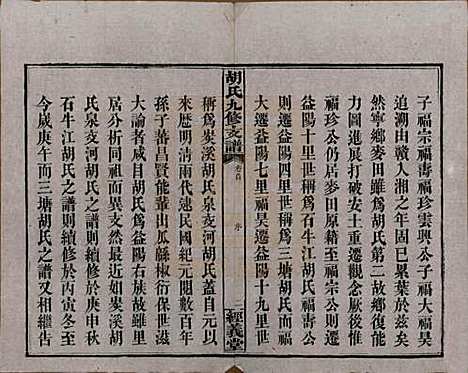 子福宗福壽福珍雲興公子福大福昊
迨溯由贛入湘之年固已累葉於茲矣
然寧鄉麥田雖爲胡氏第二故鄉復能
力圖進展打破安土重遷觀念厥後惟
福珍公仍居麥田原址而福宗公則遷
益陽十里世稱爲石牛江胡氏福壽公
則遷益陽四里世稱爲三塘胡氏福
大遷益陽七里福昊遷益陽十九里世
胡氏九修支譜
卷首
序
二
經義堂
稱爲岑溪胡氏泉交河胡氏蓋自元以
來歷明清兩代逮民國紀元閱數百年
孫子蕃昌寖能輩出瓜緜椒衍保世滋
大論者咸目胡氏爲益陽右族故雖里
居分析實一源異支然最近如岑溪胡
氏泉交河胡氏之譜則續修於庚申秋
石牛江胡氏之譜則續修於丙寅冬而
今歲庚午而三塘胡氏之譜又相繼告